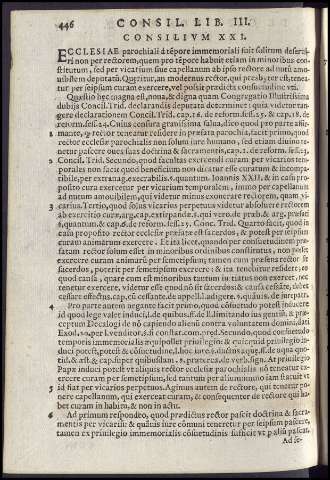 446 CONSIL. LIB. III.
CONSILIVM XXI.
ECCLESIAE parochiali à tēpore immemoriali fuit solitum deseruiri
non per rectorem, quem pro tēpore habuit etiam in minoribus constitutum,
sed per vicarium siue capellanum ab ipso rectore ad nutū amouibilem
deputatū. Quæritur, an modernus rector, qui presbyter est, teneatur
per seipsum curam exercere, vel possit prædicta consuetudine
Quæstio hæc magna est, noua, & digna quam Congregatio Illustrissima
dubijs Concil. Trid. declarandis deputata determinet: quia videtur tangere
declarationem Concil. Trid. cap. 16. de reform. sess. 23. & cap. 18. de
reform. sess. 24. Cuius censura grauissima salua, dico quod pro parte
mante, q rector teneatur residere in præfata parochia, facit primo, quod
2 Rector ecclesiæ parochialis non solum iure humano, sed etiam diuino tenetur
pascere oues suas doctrina & sacramentis, cap. 1. de reform. sess. 23.
Concil. Trid. Secundo, quod facultas exercendi curam per vicarios temporales
non facit quod beneficium non dicatur esse curatum & incompatibile,
per extrauag. execrabilis. §. quantum. Ioannis XXII. & in casu proposito
cura exercetur per vicarium temporalem, immo per capellanum
ad nutum amouibilem, qui videtur minus exonerare rectorem, quam
3 carius. Tertio, quod solus vicarius perpetuus videtur absoluere rectorem
ab exercitio curæ, arg. cap. extirpandæ. §. qui vero. de præb. & arg. præfati
§. quantum, & cap. 6. de reform. sess. 25. Conc. Trid. Quarto facit, quod in
casu proposito rector ecclesiæ præfatæ est sacerdos, & potest per seipsum
curam animarum exercere. Et ita licet, quando per consuetudinem præfatam
rector solum esset in minoribus ordinibus constitutus, non posset
exercere curam animarū per semetipsum; tamen cum præsens rector sit
sacerdos, poterit per semetipsum exercere: & ita tenebitur residere: eo
quod causa, quare eum solum minoribus constitutum in statum non exercet, nec
tenetur exercere, videtur esse quod nō sit sacerdos; & causa cessāte, debet
cessare effectus, cap. cū cessante. de appell. l. adigere. §. quāuis. de iure patr.
4 Pro parte autem negante facit primo, quod cōsuetudo potest inducere
id quod lege valet induci, l. de quibus. ff. de ll. limitando ius gentiū, & præceptum
Decalogi de nō capiendo alieno contra voluntatem domini, dati
Exod. 20. per l. venditor. §. si constat. com. præd. Secundo, quod consuetudo
temporis immemorialis æquipollet priuilegio: & quicquid priuilegio induci
potest, potest & cōsuetudine, l. hoc iure. §. ductus aquæ. ff. de aqua quotid.
& æst. & cap. super quibusdam. §. præterea. de verb. sign. At priuilegio
Papæ induci potest vt alicuius rector ecclesiæ parochialis nō teneatur exercere
curam per semetipsum, sed tantum per alium: cum iam statuere possit
5 id fiat per vicarios perpetuos. Aginus autem de rectore, qui tenetur ponere
capellanum, qui exerceat curam, & consequenter de rectore qui habet
curam in habitu, & non in actu.
6 Ad primum respondeo, quod prædictus rector pascit doctrina & sacramentis
per vicariū: & quāuis iure cōmuni teneretur per seipsum pascere,
tamen ex priuilegio immemorialis cōsuetudinis sufficit vt pariu pascat.
Ad se-